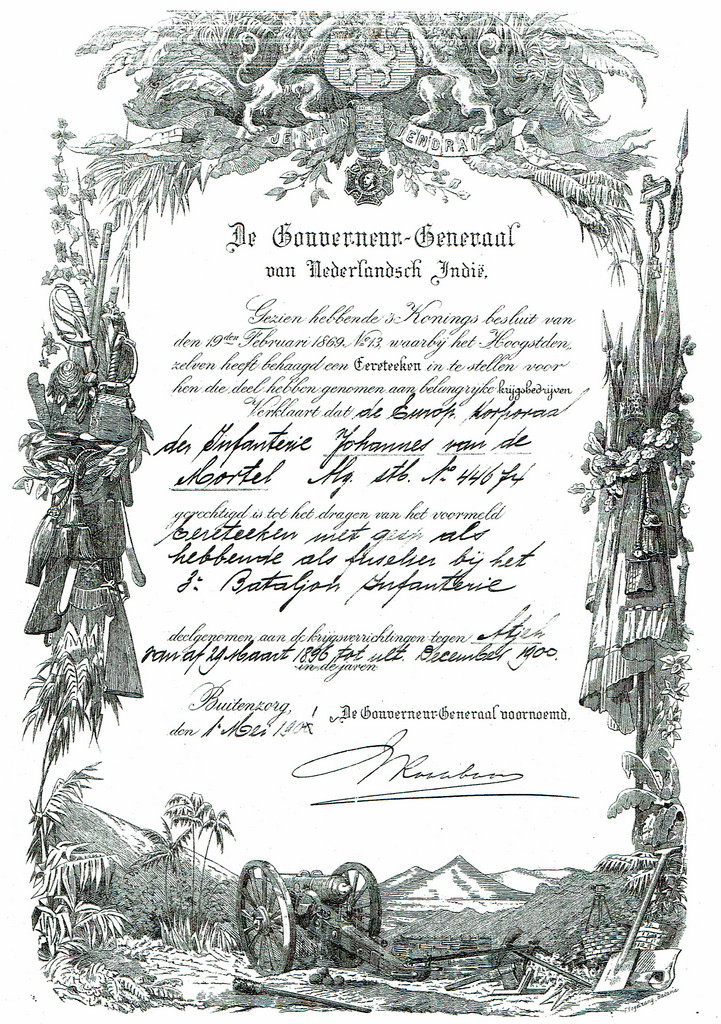 JE MAINTIENDRAI
De Gouverneur-Generaal
van Nederlandsch Indië,
Gezien hebbende 's Konings besluit van
den 19den Februari 1869 No 13, waarby het Hoogstden,,
zelven heeft behaagd een Eereteeken in te stellen voor
hen die deel hebben genomen aan belangryke krijgsbedrijven
Verklaart dat de Europ. korporaal
der Infanterie Johannes van de
Mortel Alg. stb. No 44674
gerechtigd is tot het dragen van het voormeld
Eereteeken met gesp als
hebbende als fuselier bij het
3e Bataljon Infanterie
deelgenomen aan de krygsverrichtingen tegen Atjeh
van af 29 Maart 1896 tot ult. December 1900.
in de jaren
Buitenzorg,
den 1n Mei 1901
De Gouverneur-Generaal voornoemd,